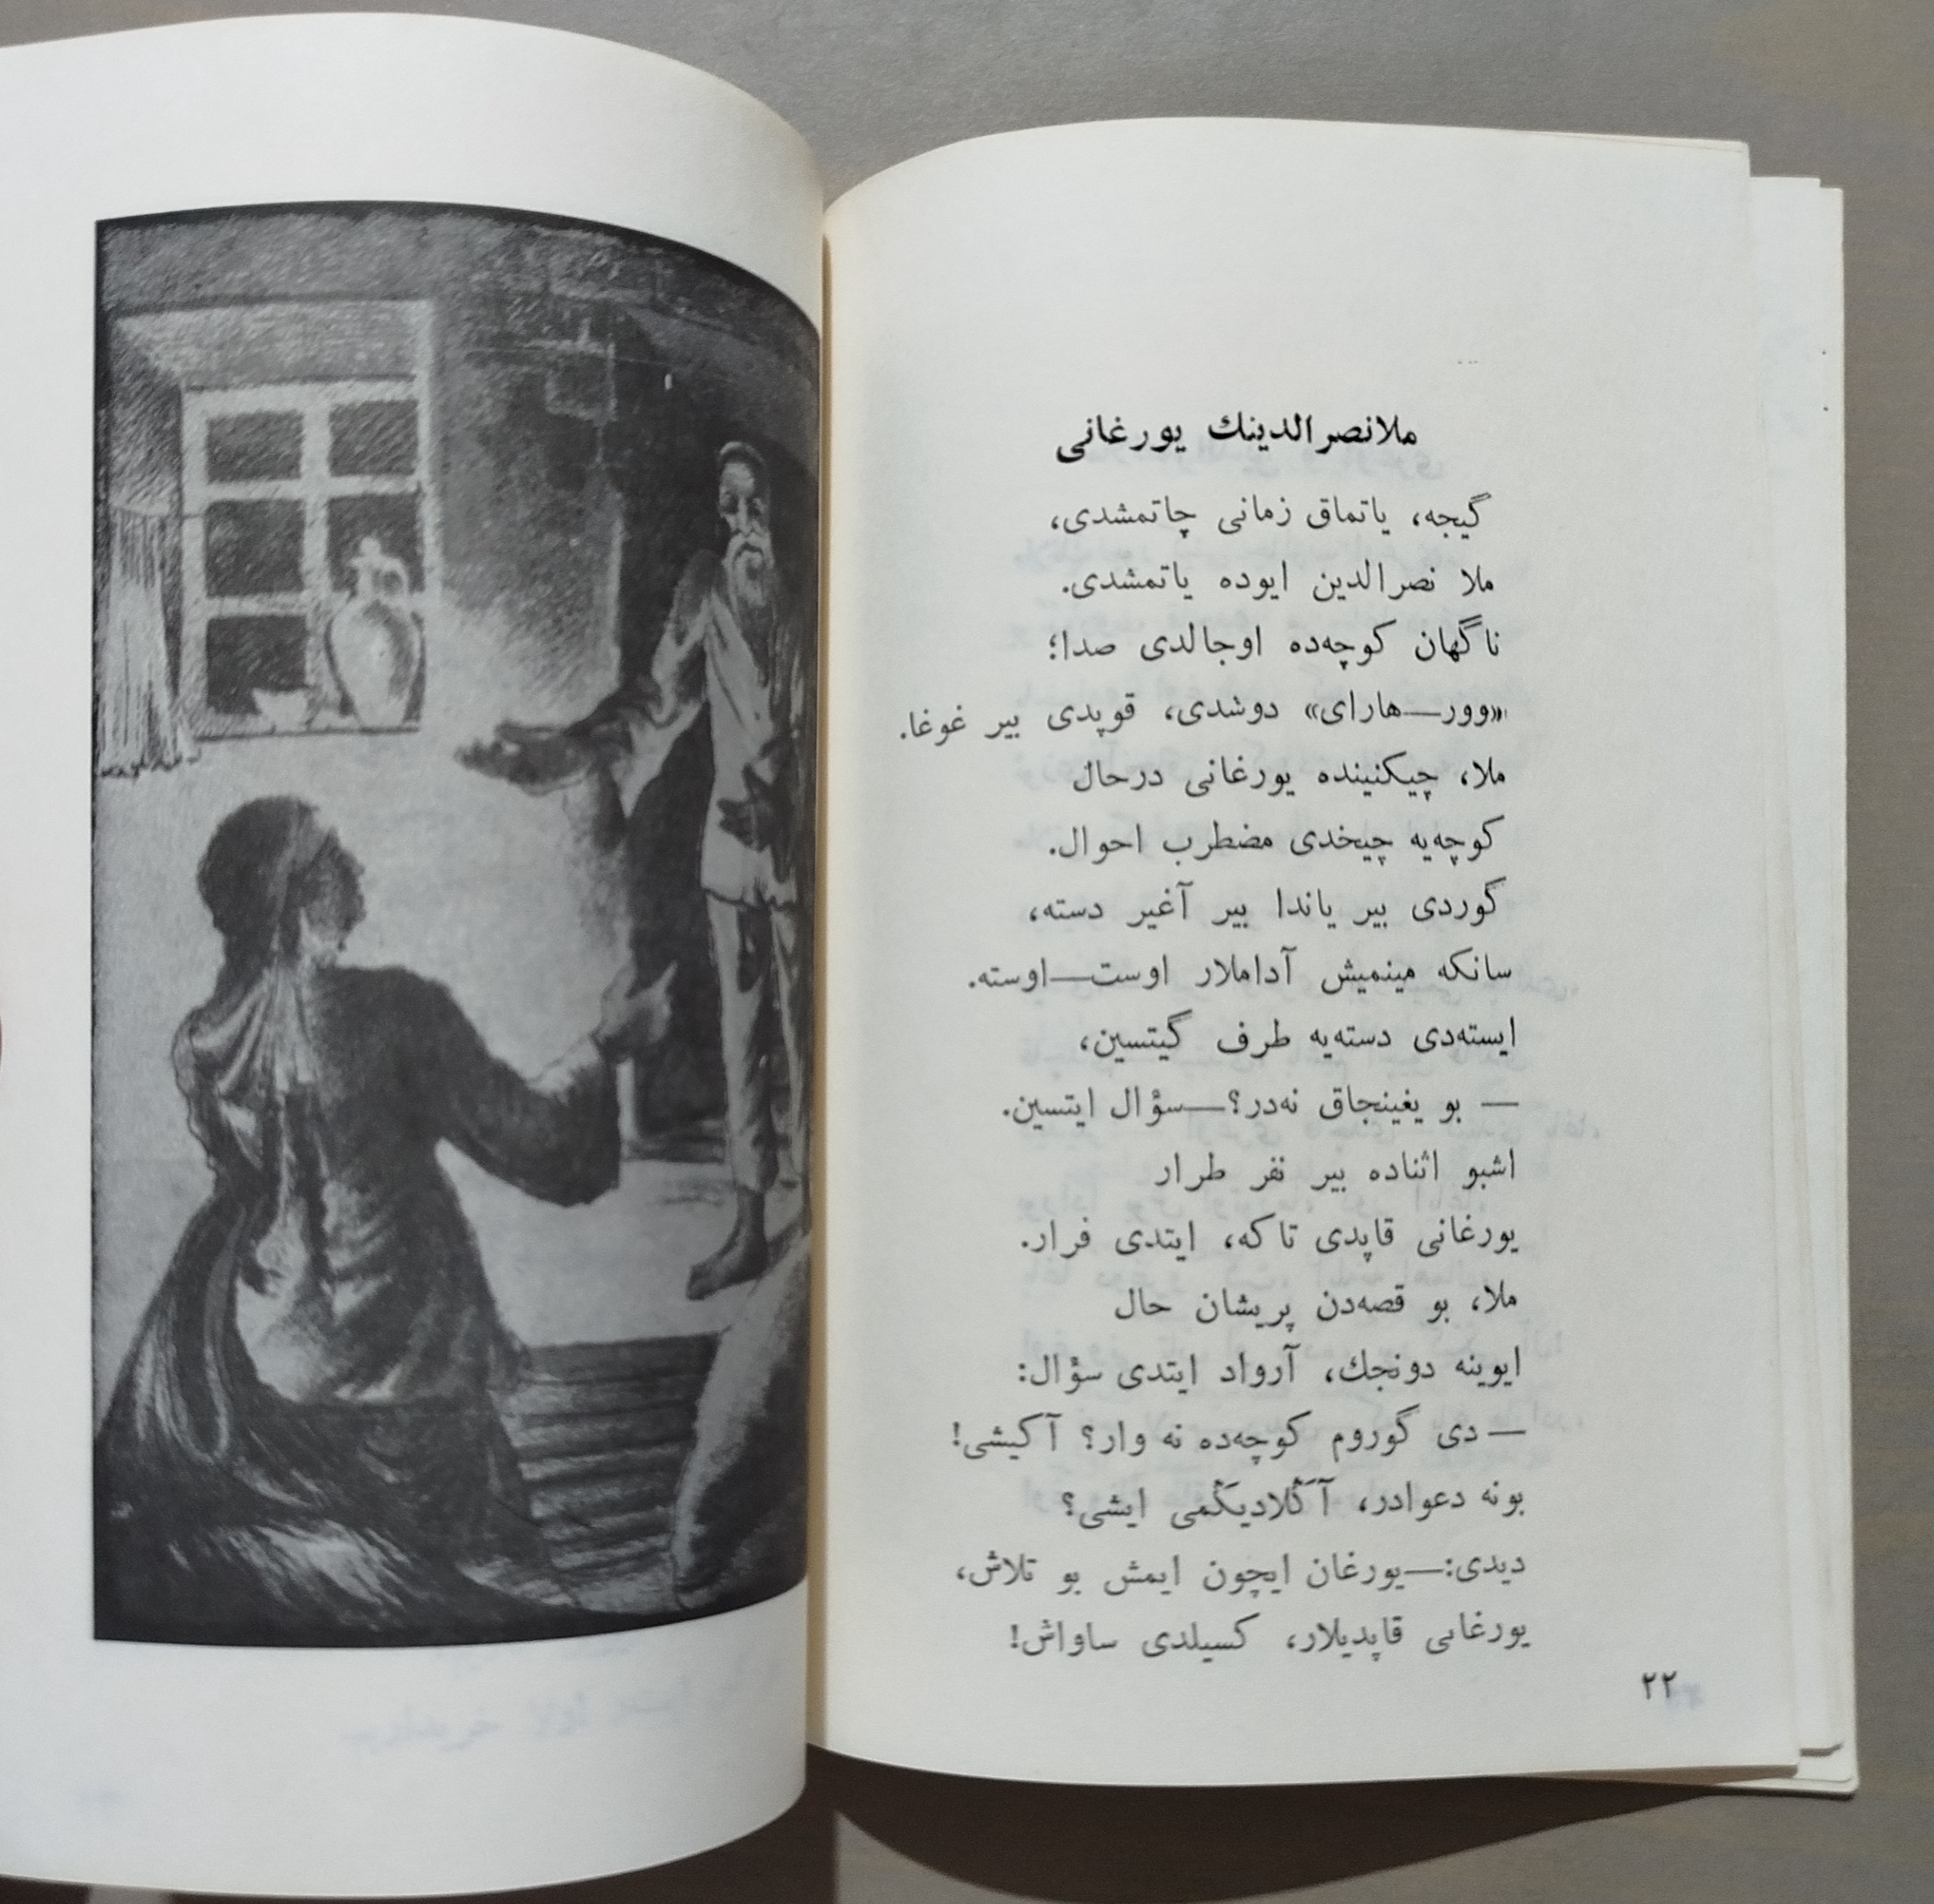 ملانصرالدینك یورغانی
گیجه، یاتماق زمانی چاتمشدی،
ملا نصرالدین ایوده یاتمشدی.
ناگهان کوچه‌ده اوجالدی صدا؛
«وور—هارای» دوشدی، قوپدی بیر غوغا.
ملا، چیکنینده یورغانی درحال
کوچه‌یه چیخدی مضطرب احوال.
گوردی بیر یاندا بیر آغیر دسته،
سانکه مینمیش آداملار اوست—اوسته.
ایسته‌دی دسته‌یه طرف گیتسین،
— بو یغینجاق نه‌در؟—سؤال ایتسین.
اشبو اثناده بیر نفر طرار
یورغانی قاپدی تاکه، ایتدی فرار.
ملا، بو قصه‌دن پریشان حال
ایوینه دونجك، آرواد ایتدی سؤال:
— دی گوروم کوچه‌ده نه وار؟ آکیشی!
بونه دعوادر، آڭلادیڭمی ایشی؟
دیدی:—یورغان ایچون ایمش بو تلاش،
یورغانی قاپدیلار، کسیلدی ساواش!
۲۲